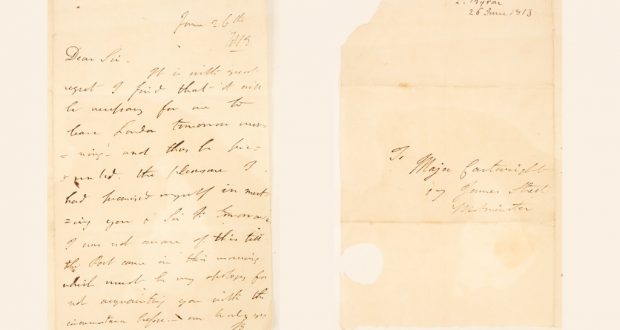 June 26th
1813
Dear Sir.
It is with great
regret I find that it will
be necessary for me to
leave London tomorrow morn
=ning and thus be pre=
=vented the pleasure I
had promised myself in meet
=ing you & Sir F. tomorrow
I was not aware of this till
the Post came in this morning
which must be my apology for
not acquainting you with the
circumstance before
26 June 1813
To Major Cartwright
17 James Street
Westminster